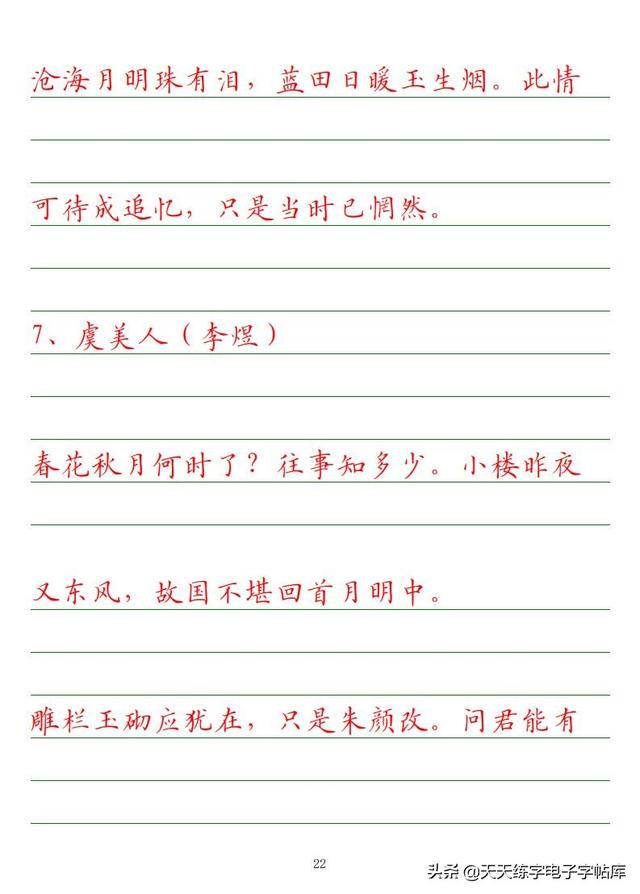 沧海月明珠有泪，蓝田日暖玉生烟。此情
可待成追忆，只是当时已惘然。
7、虞美人（李煜）
春花秋月何时了？往事知多少。小楼昨夜
又东风，故国不堪回首月明中。
雕栏玉砌应犹在，只是朱颜改。问君能有
22
头条 @天天练字电子字帖库